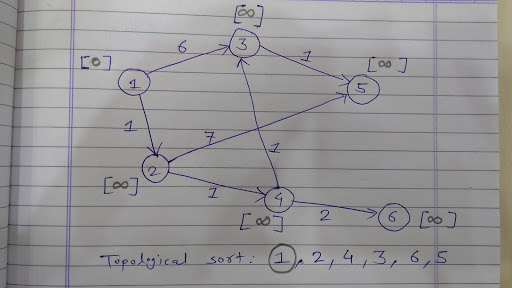 [∞]
6
3
1
[0]
[∞]
1
5
1
7
2
1
1
[∞]
4
2
6
[∞]
[∞]
Topological sort: 1, 2, 4, 3, 6, 5